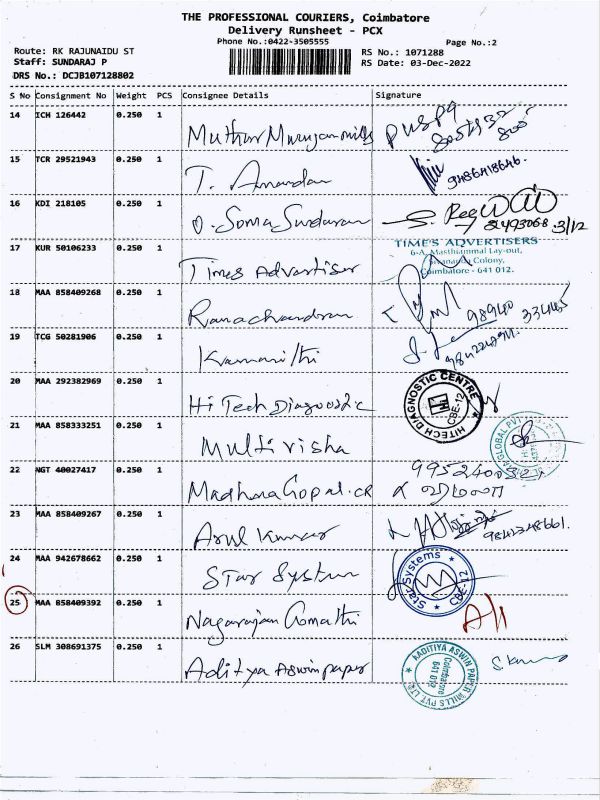 THE PROFESSIONAL COURIERS, Coimbatore
Delivery Runsheet - PCX
Phone No.:0422-3505555
Page No.:2
Route: RK RAJUNAIDU ST
RS No.: 1071288
Staff: SUNDARAJ P
RS Date: 03-Dec-2022
DRS No.: DCJB107128802
S No Consignment No Weight PCS Consignee Details Signature
14 ICH 126442 0.250 1
15 TCR 29521943 0.250 1
T. Anandan
9486418646.
16 KDI 218105 0.250 1
O. Soma Sundaram
3/12
17 KUR 50106233 0.250 1
Times Advertiser
TIME'S ADVERTISERS
6-A, Masthiammal Lay-out,
Colony,
Coimbatore - 641 012.
18 MAA 858409268 0.250 1
Ramachandran
98940 33465
19 TCG 50281906 0.250 1
20 MAA 292382969 0.250 1
Hi Tech Diagnostic
HITECH DIAGNOSTIC CENTRE
CBE-12
21 MAA 858333251 0.250 1
Multi visha
GLOBAL PVT
22 NGT 40027417 0.250 1
Madhana Gopal.CR
விமலா
23 MAA 858409267 0.250 1
Arul Kumar
24 MAA 942678662 0.250 1
Star System
Star Systems
CBE-12
25 MAA 858409392 0.250 1
Nagarajan Gomathi
26 SLM 308691375 0.250 1
Aditya Aswin paper
AADITIYA ASWIN PAPER MILLS PVT. LTD
Coimbatore
641 012
S. Kumar